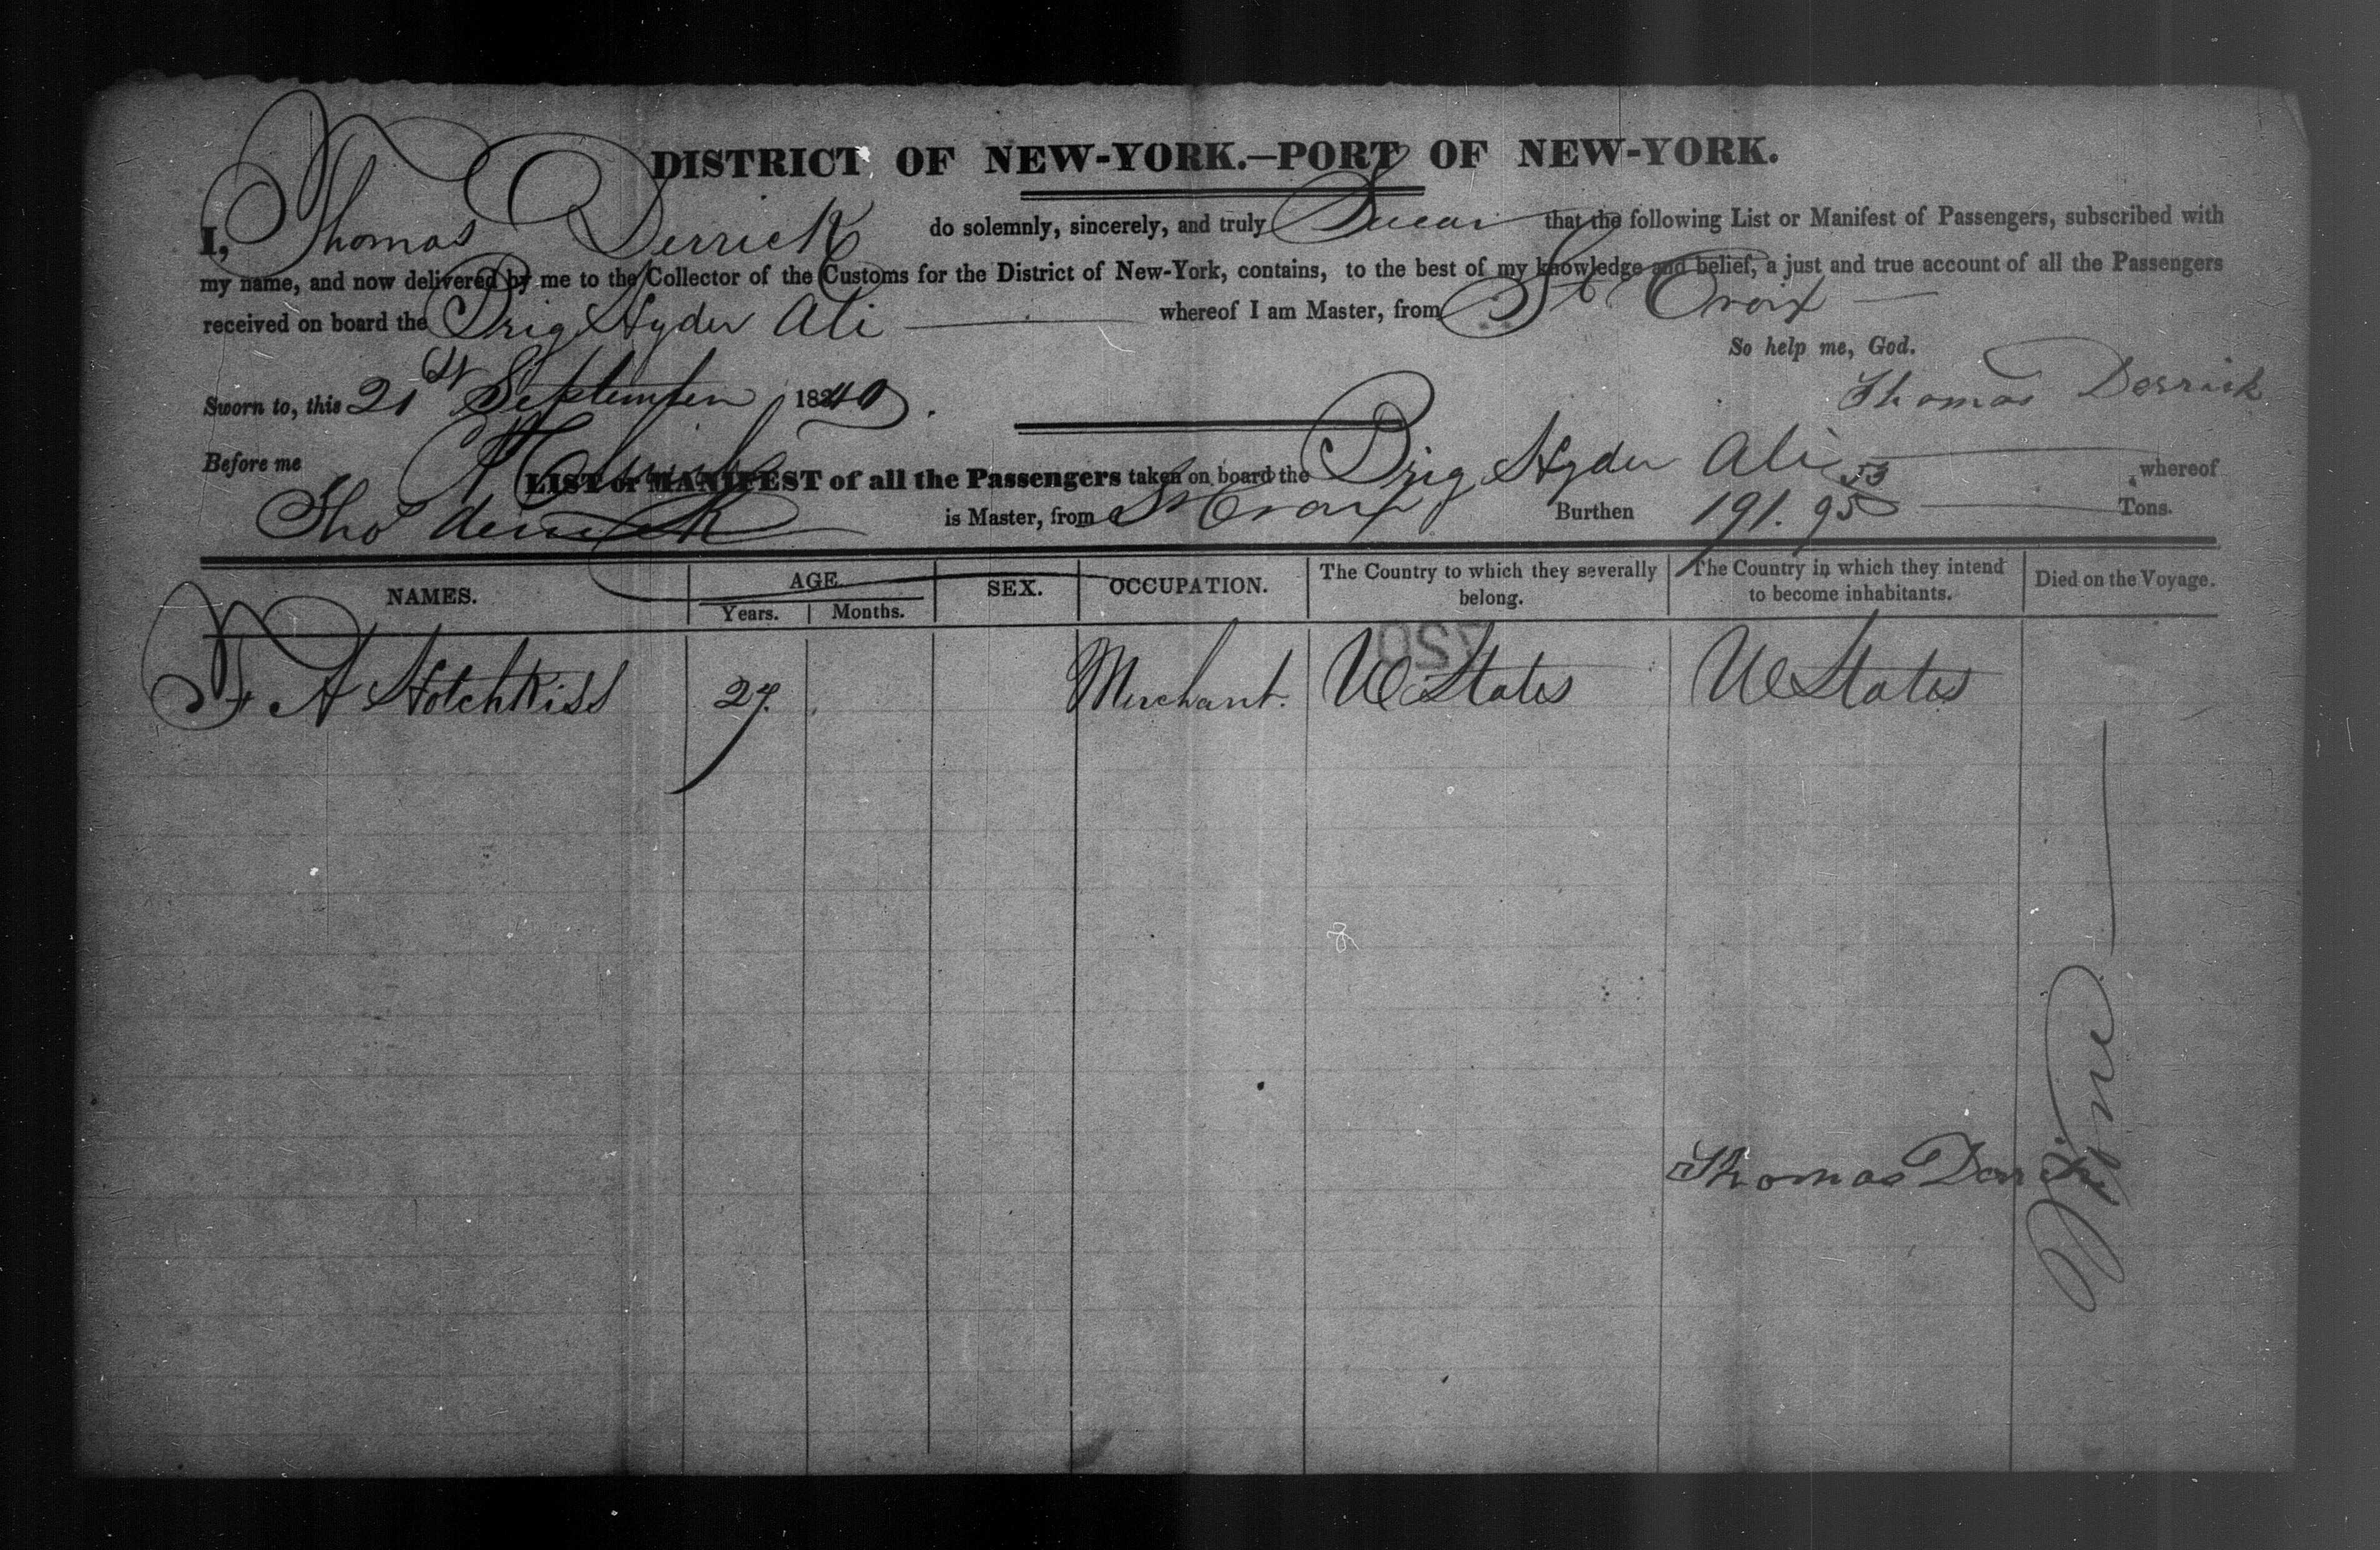 DISTRICT OF NEW-YORK.—PORT OF NEW-YORK.
I, Thomas Derrick do solemnly, sincerely, and truly Swear that the following List or Manifest of Passengers, subscribed with
my name, and now delivered by me to the Collector of the Customs for the District of New-York, contains, to the best of my knowledge and belief, a just and true account of all the Passengers
received on board the Brig Hyder Ali whereof I am Master, from St Croix
So help me, God.
Sworn to, this 21st September 1840. Thomas Derrick
Before me
LIST or MANIFEST of all the Passengers taken on board the Brig Hyder Ali whereof
Tho derrick is Master, from St Croix Burthen 191. 53/95 Tons.
NAMES. AGE. SEX. OCCUPATION. The Country to which they severally belong. The Country in which they intend to become inhabitants. Died on the Voyage.
Years. Months.
A Hotchkiss 27. Merchant. U States U States
None
Thomas Derrick